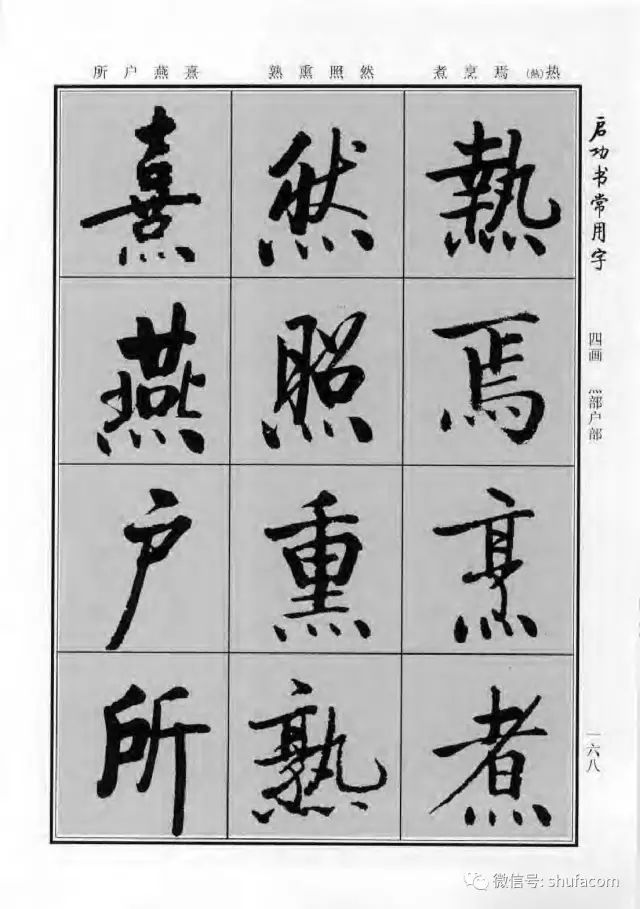 热(熱)焉烹煮
然照熏熟
熹燕户所
启功书常用字
四画 灬部户部
一六八
熱焉烹煮
然照熏熟
熹燕户所
微信号: shufacom